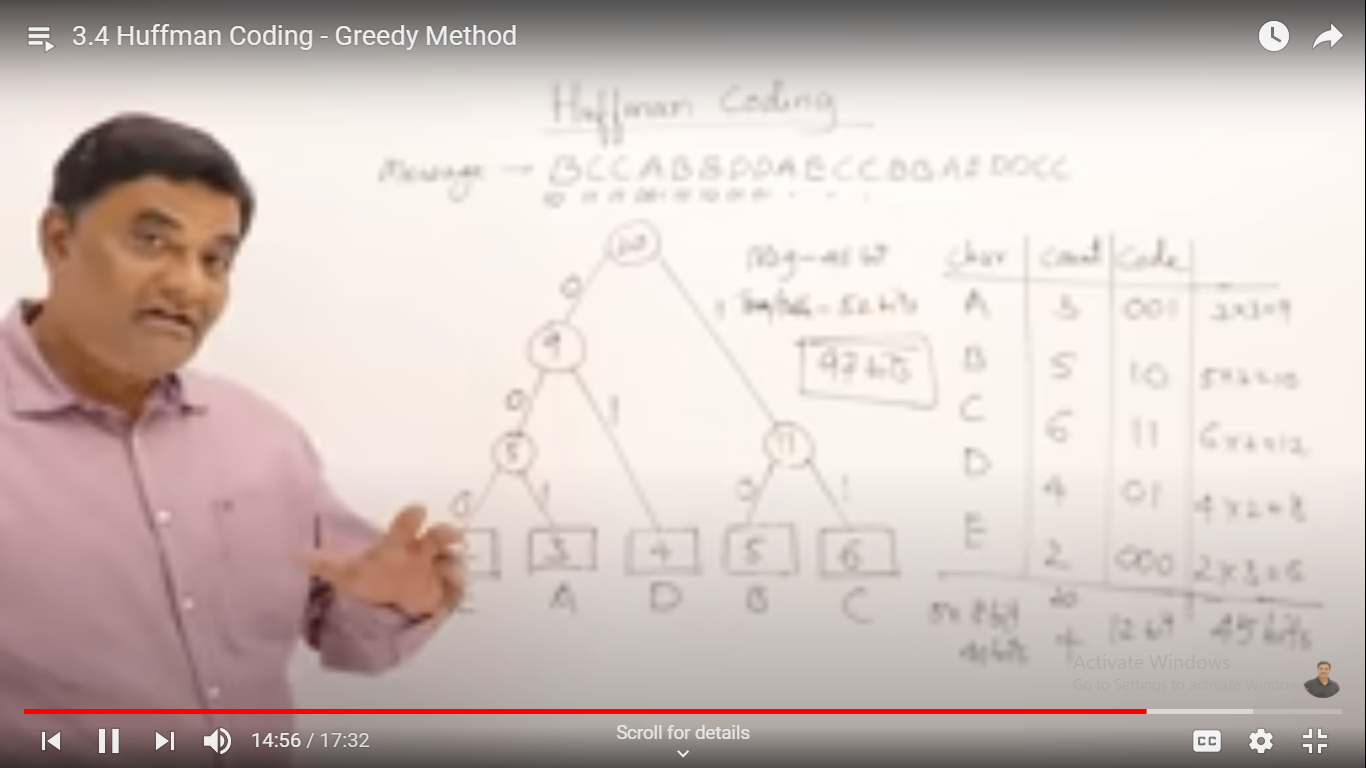 3.4 Huffman Coding - Greedy Method
Huffman Coding
Message → BCCABBDDAECCBBAEDDCC
20
0
9
0 1
5 11
0 1 0 1
3 4 5 6
A D B C
Msg - 45 bit
52 bits
97 bits
Char Count Code
A 3 001 3x3=9
B 5 10 5x2=10
C 6 11 6x2=12
D 4 01 4x2=8
E 2 000 2x3=6
5x8bit 20 12 bit 45 bits
40 bits +
Activate Windows
Go to Settings to activate Windows
14:56 / 17:32
Scroll for details
CC